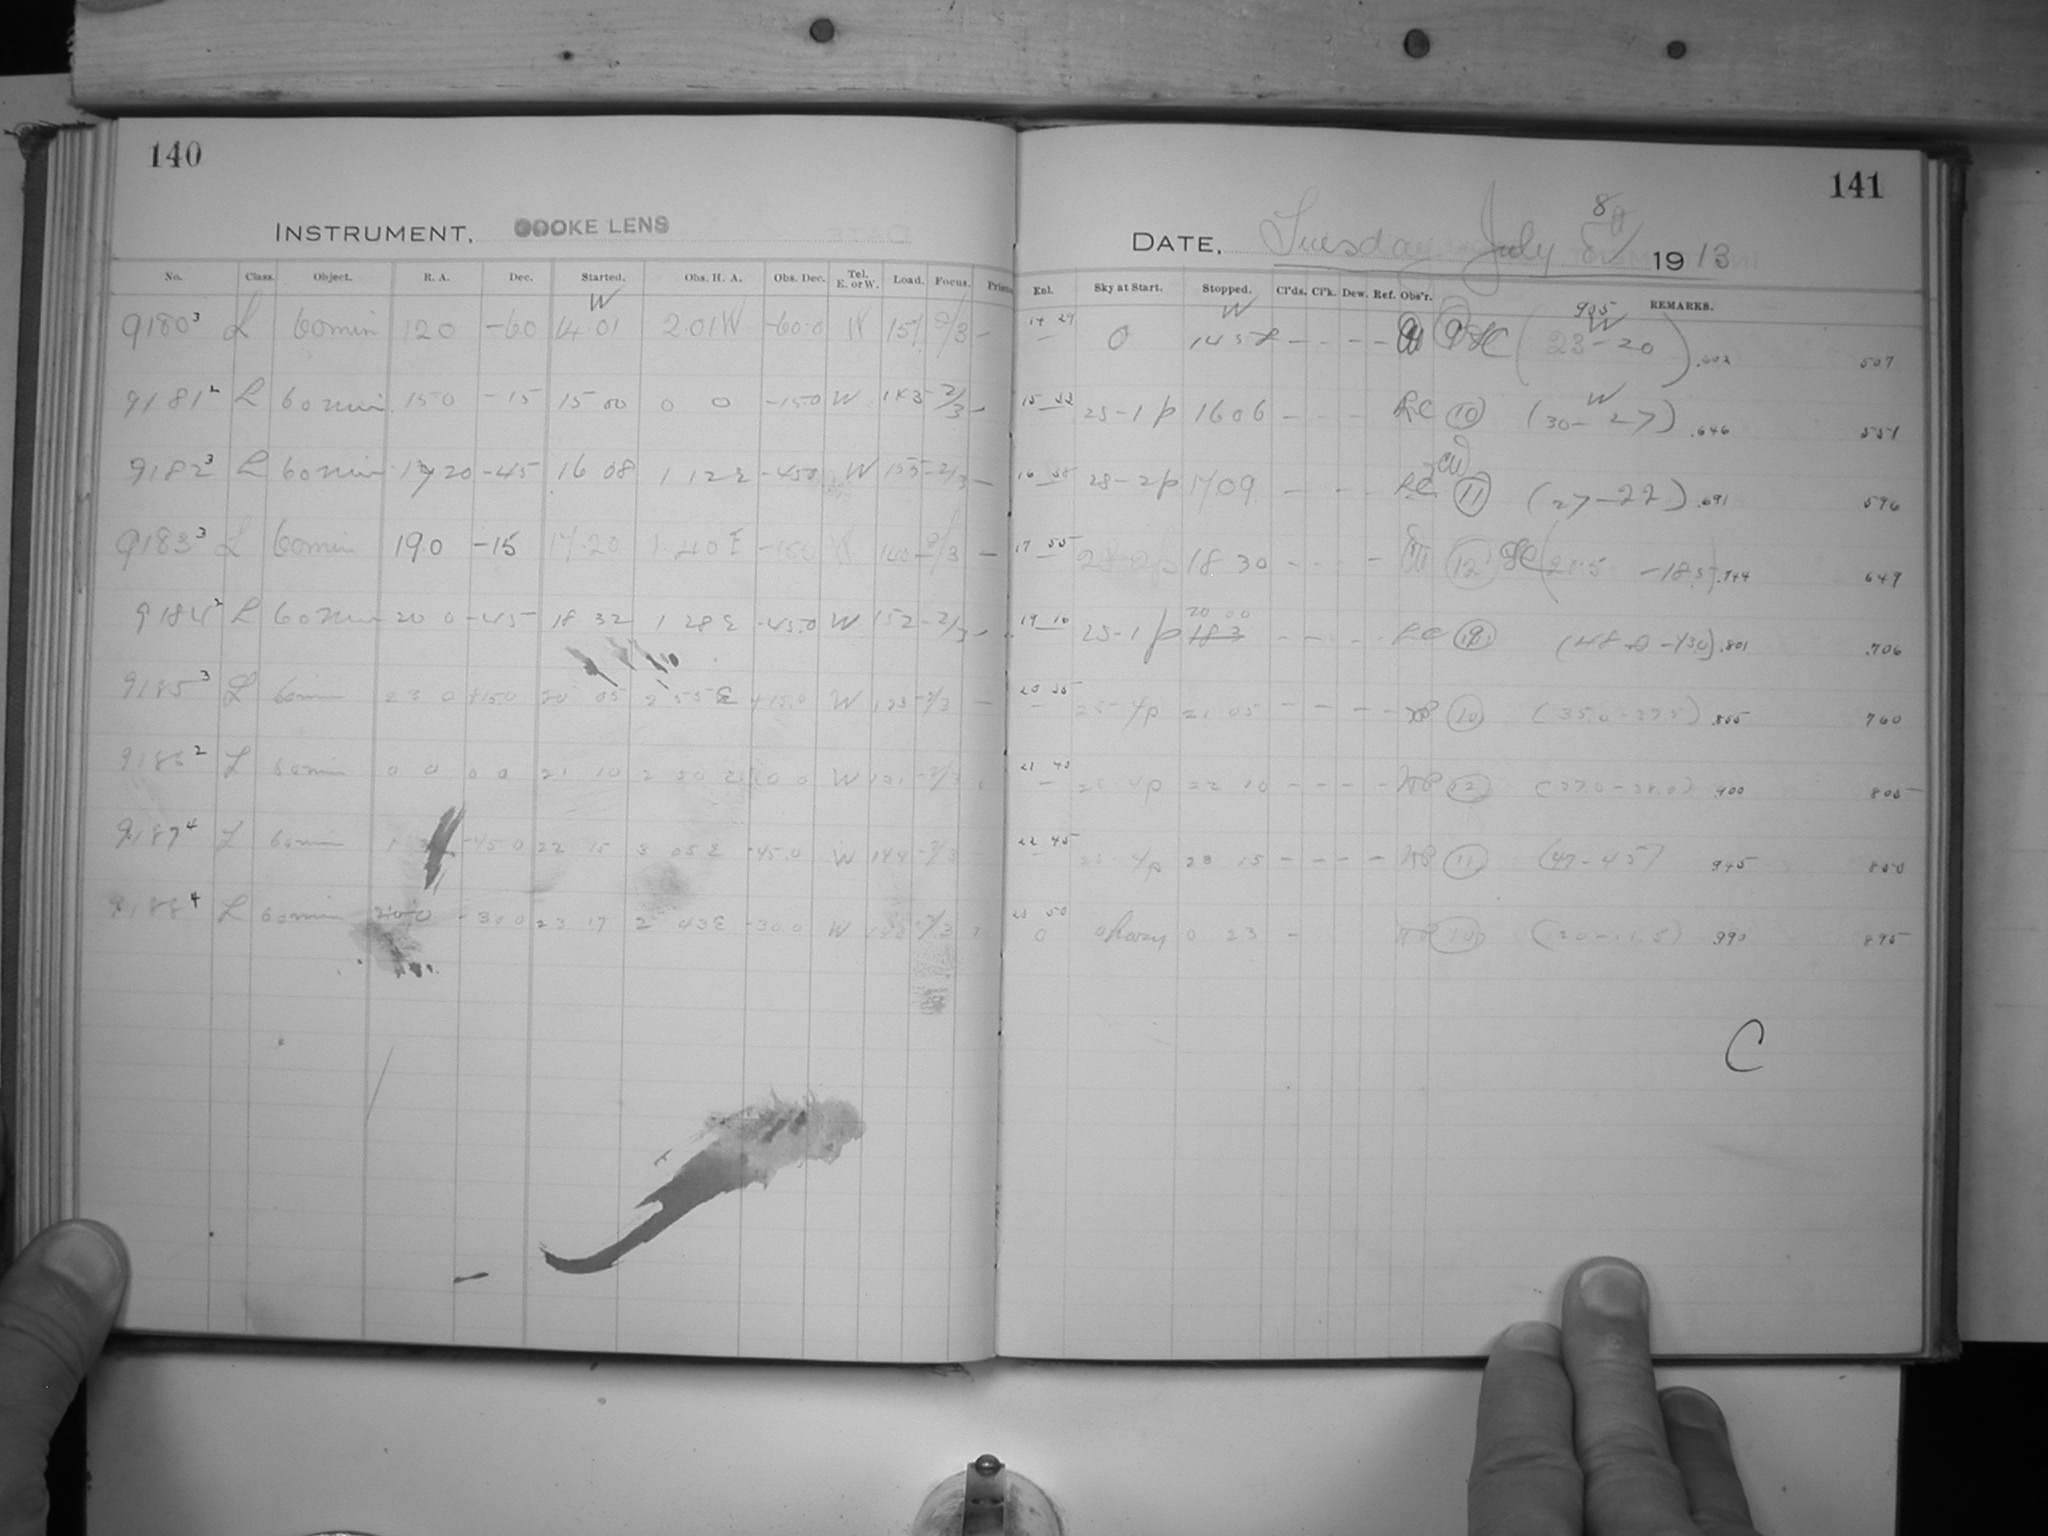 140
INSTRUMENT, COOKE LENS
No. Class. Object. R. A. Dec. Started. Obs. H. A. Obs. Dec. Tel. E. or W. Load. Focus.
W
9180³ L 60min 12 0 -60 14 01 2.01W -60.0 W 151 2/3 -
9181² L 60min 15 0 -15 15 00 0 0 -15.0 W 143 -2/3 -
9182³ L 60min 17 20 -45 16 08 1 12 E -45.0 W 155 -2/3 -
9183³ L 60min 19.0 -15 17.20 1.40 E -15.0 W 140 -2/3 -
9184² L 60min 20 0 -45 18 32 1 28 E -45.0 W 152 -2/3 -
9185³ L 60min 23 0 +15.0 20 05 2 55 E +15.0 W 123 -2/3 -
9186² L 60min 0 0 0 0 21 10 2 50 E 0 0 W 131 -2/3
9187⁴ L 60min 1 -45 0 22 15 3 05 E -45.0 W 144 -2/3
9188⁴ L 60min -30 0 23 17 2 03 E -30.0 W -2/3
141
DATE, Tuesday July 8th 1913
Enl. Sky at Start. Stopped. Cl'ds. Cl'k. Dew. Ref. Obs'r. REMARKS.
W 905 W
14 29 0 14 58 - - - - 9 (23-20) .602 507
W
15 33 25-1p 16 06 - - - RC 10 (30-27) .646 551
16 38 28-2p 17 09 - - - RC 11 (27-22) .691 596
17 55 18 30 - - - - 12 -18.5) .744 649
20 00
19 10 25-1p 183 - - - - RC 9 (48.0-43.0) .801 .706
20 35 25-4p 21 05 - - - - 10 (35.0-37.5) .855 760
21 40 25 4p 22 10 - - - - 12 (37.0-38.0) 900 805
22 45 4p 23 15 - - - - 11 (47-45) 945 850
23 50 0 0 23 - 10 990 895
C